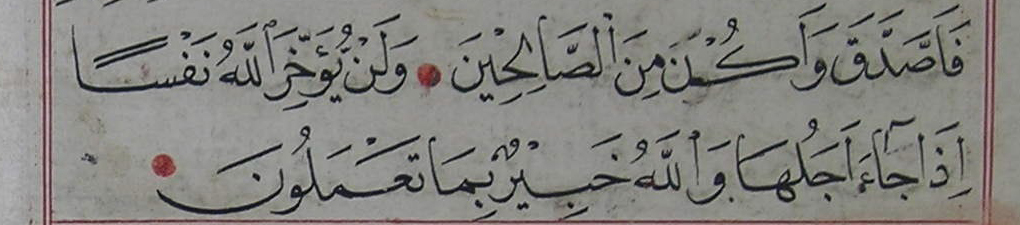 فَاَصَّدَّقَ وَاَكُنْ مِنَ الصَّالِحِينَ وَلَنْ يُؤَخِّرَ اللَّهُ نَفْسًا
اِذَا جَاءَ اَجَلُهَا وَاللَّهُ خَبِيرٌ بِمَا تَعْمَلُونَ